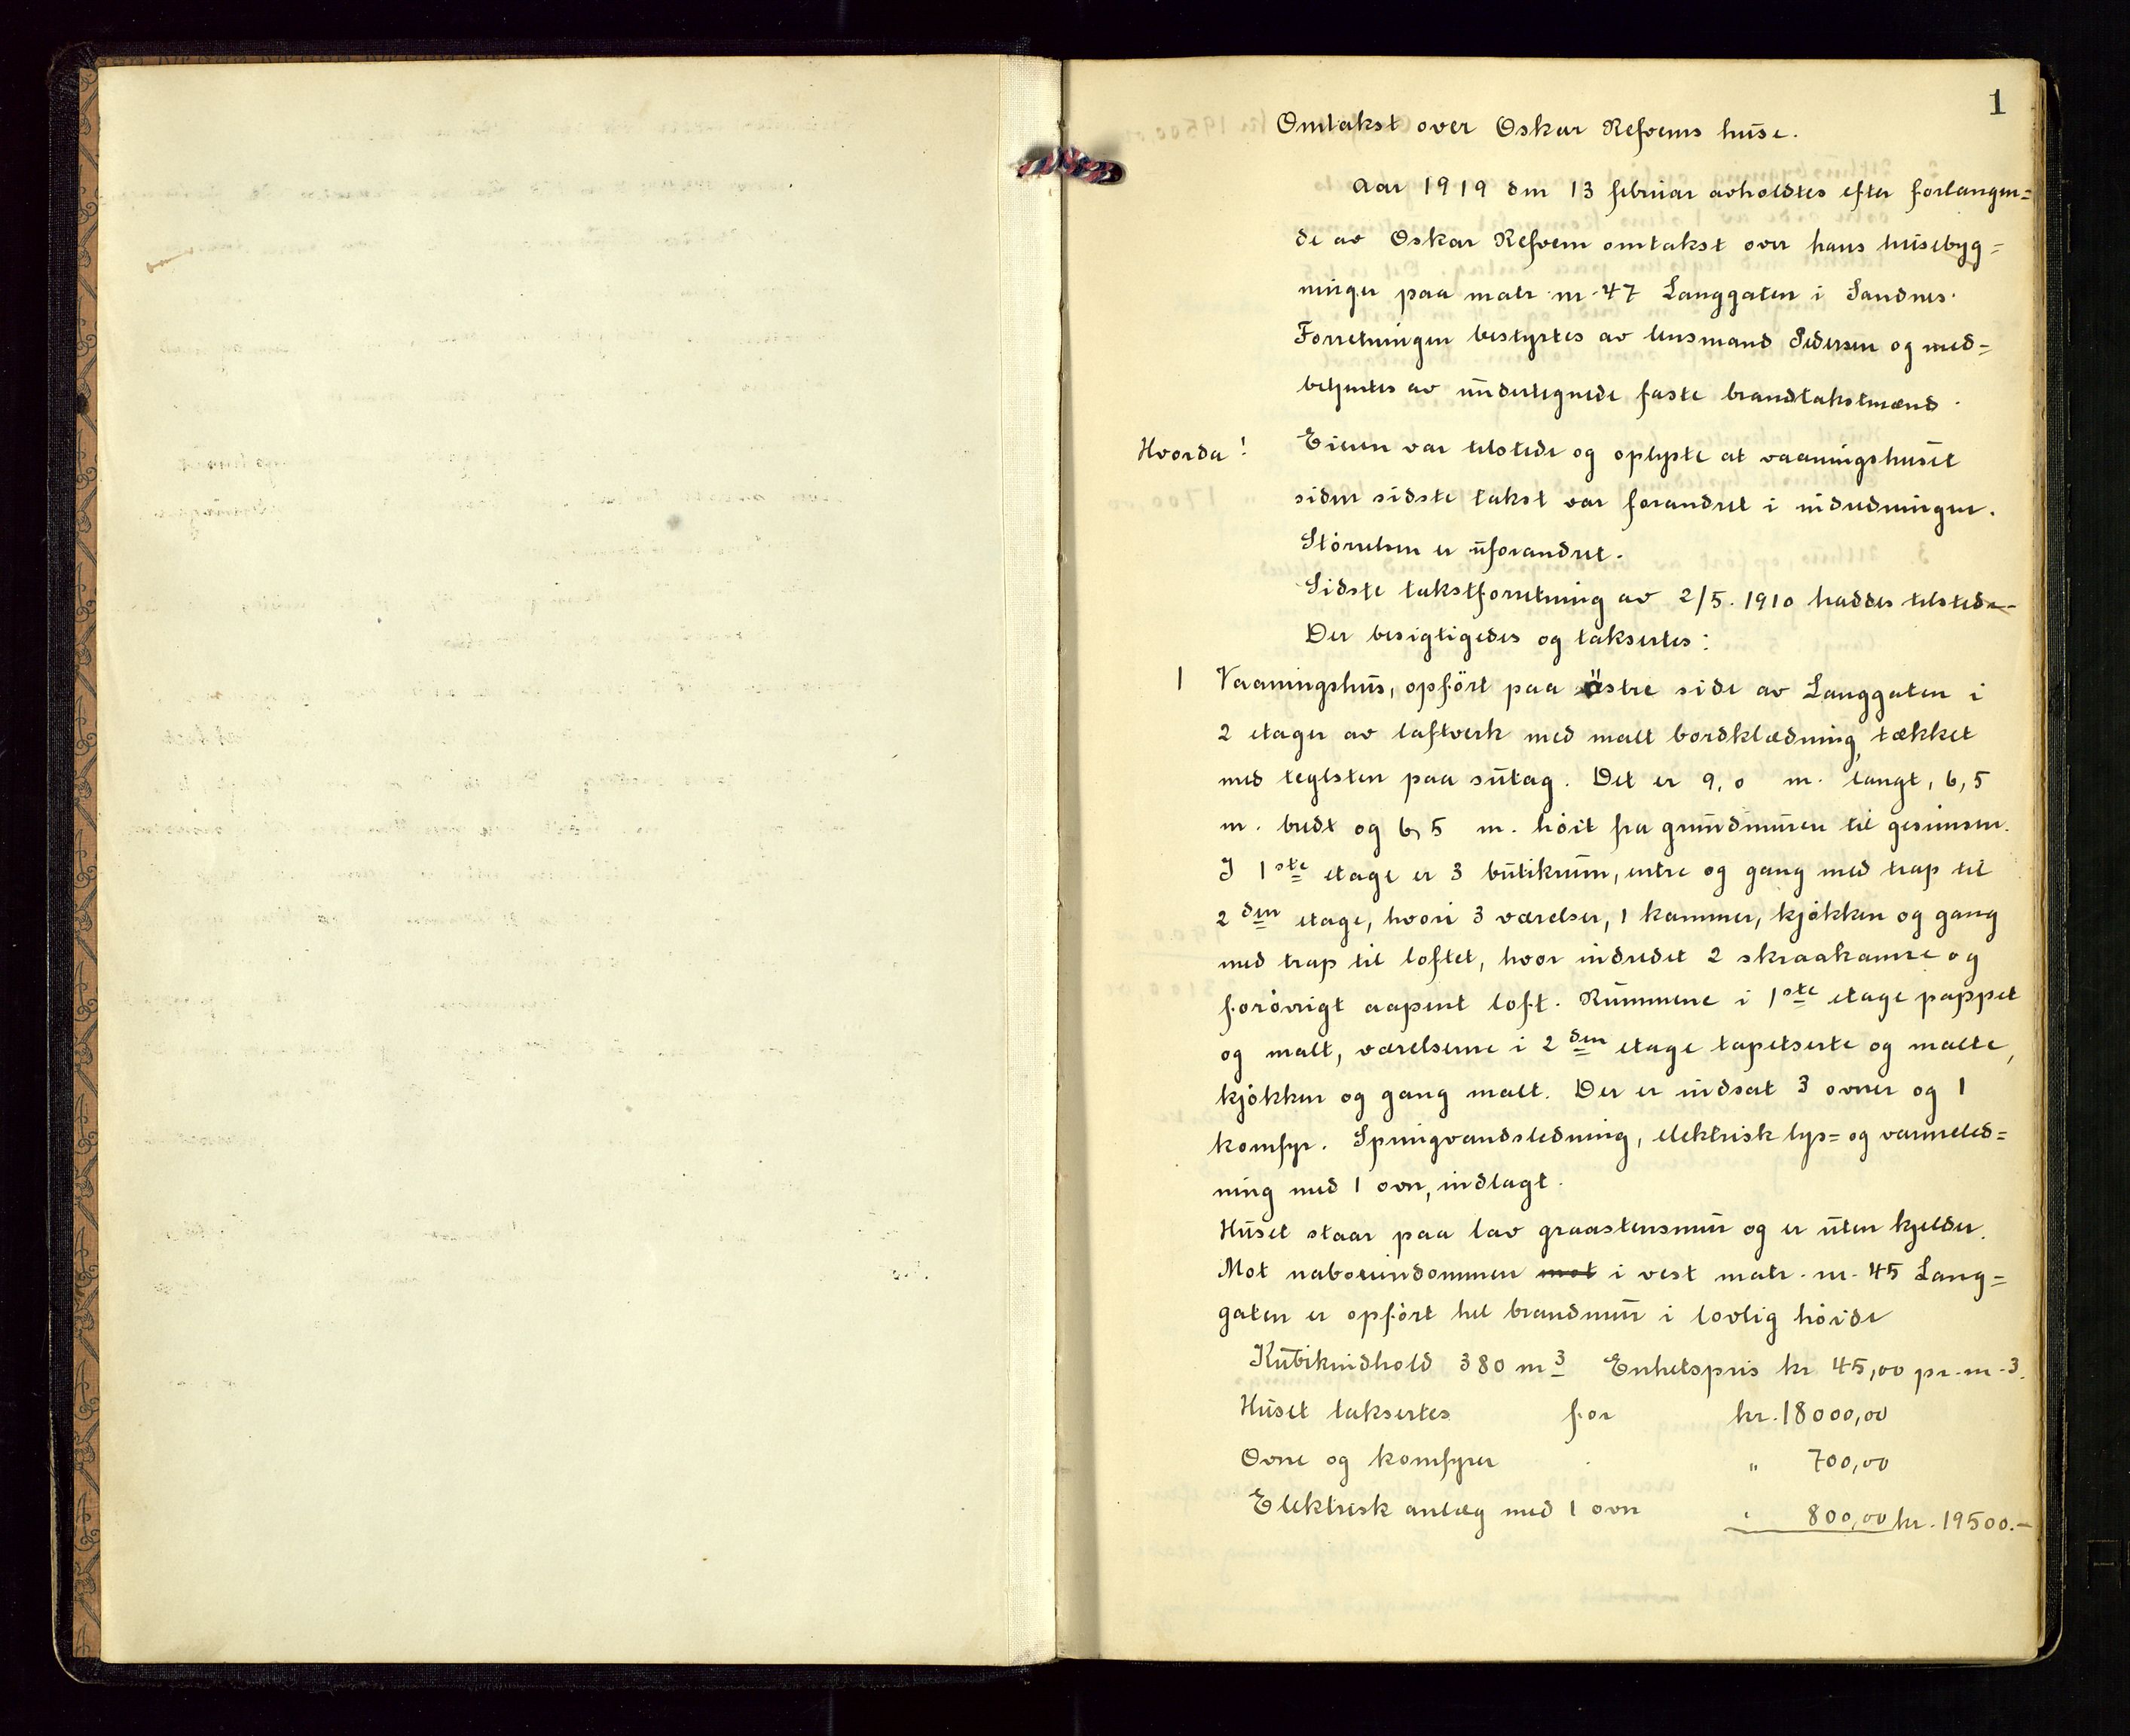 1
Omtakst over Oskar Refvems huse.
Aar 1919 den 13 februar avholdtes efter forlangen=
de av Oskar Refvem omtakst over hans husebyg=
ninger paa matr. nr. 47 Langgaten i Sandnes.
Forretningen bestyrtes av lensmand Pedersen og med=
betjentes av undertegnede faste brandtakstmænd.
Hvorda! Eieren var tilstede og oplyste at vaaningshuset
siden sidste takst var forandret i indredningen.
Störrelsen er uforandret.
Sidste takstforretning av 2/5. 1910 haddes tilstede.
Der besigtigedes og taksertes:
1 Vaaningshus, opfört paa östre side av Langgaten i
2 etager av laftverk med malt bordklædning, tækket
med teglsten paa sutag. Det er 9,0 m. langt, 6,5
m. bredt og 6,5 m. höit fra grundmuren til gesimsen.
I 1ste etage er 3 butikrum, entre og gang med trap til
2den etage, hvori 3 værelser, 1 kammer, kjökken og gang
med trap til loftet, hvor indredet 2 skraakamre og
forövrigt aapent loft. Rummene i 1ste etage pappet
og malt, værelserne i 2den etage tapetserte og malte,
kjökken og gang malt. Der er indsat 3 ovner og 1
komfyr. Springvandsledning, elektrisk lys= og varmeled=
ning med 1 ovn, indlagt.
Huset staar paa lav graastensmur og er uten kjelder.
Mot naboeiendommen mot i vest matr. nr. 45 Lang=
gaten er opfört hel brandmur i lovlig höide
Kubikindhold 380 m3 Enhetspris kr 45,00 pr. m.3.
Huset taksertes for kr. 18000,00
Ovne og komfyrer " 700,00
Elektrisk anlæg med 1 ovn " 800,00 kr. 19500.-